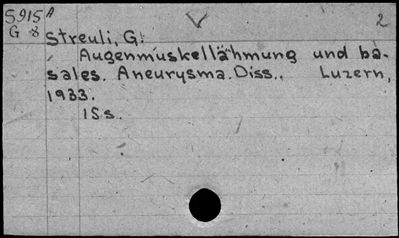 S915A 2
G 8
Streuli, G.
Augenmuskellähmung und ba-
sales. Aneurysma. Diss., Luzern,
1933.
15s.